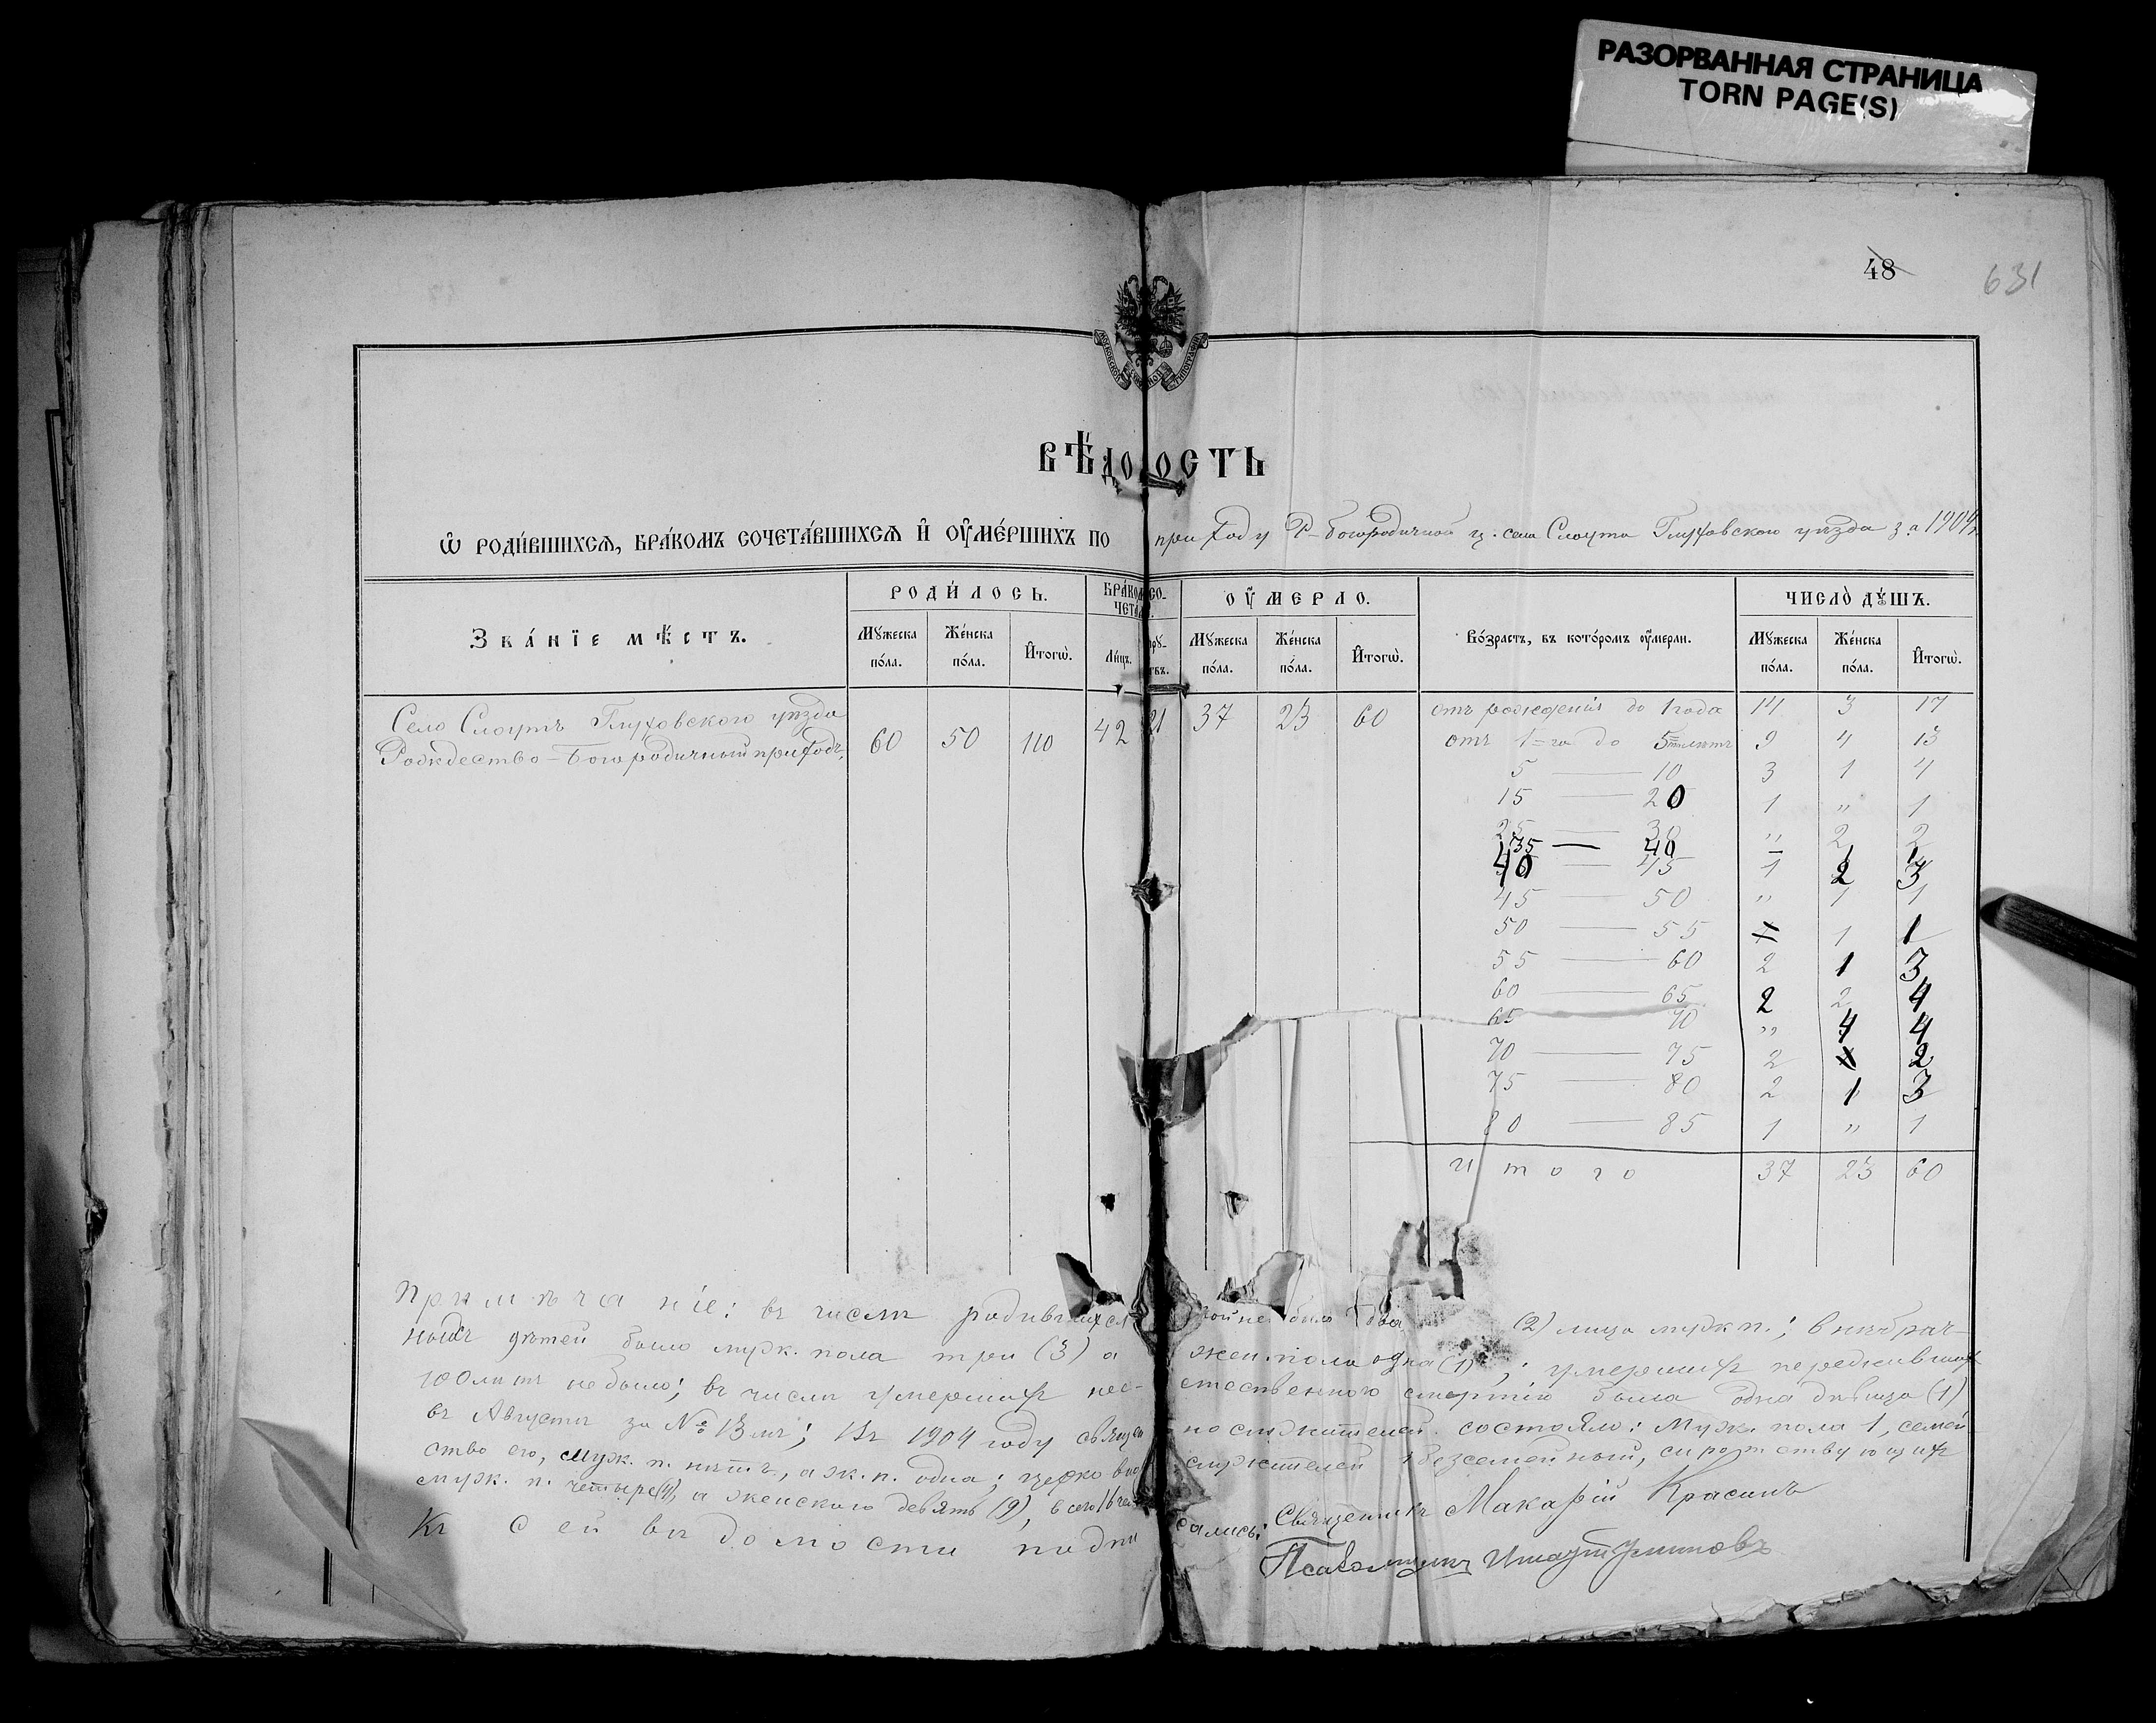 РАЗОРВАННАЯ СТРАНИЦА
TORN PAGE(S)
48
631
МОСКОВСКОЙ СѴНОД ТИПОГРАФІИ
ВѢДО ОСТЬ
Ѡ РОДИ́ВШИХСѦ, БРА́КОМЪ СОЧЕТА́ВШИХСѦ И҆ ОУ҆МЕ́РШИХЪ ПО приходу Р-Богородичной ц. села Слоута Глуховского уѣзда за 1904 г.
Зва́нїе мѣ́стъ. РОДИ́ЛОСЬ. БРА́КОМ СО- ЧЕТА ОУ҆МЕРЛО. Во́зрастъ, въ кото́ромъ оу҆мерли. ЧИСЛО̀ ДꙊ́ШЪ.
Мꙋжеска по́ла. Же́нска по́ла. И҆тогѡ̀. Ли́цъ. Мꙋжеска по́ла. Же́нска по́ла. И҆тогѡ̀. Мꙋжеска по́ла. Же́нска по́ла. И҆тогѡ̀.
Село Слоутъ Глуховского уѣзда
Рождество-Богородичный приходъ. 60 50 110 42 21 37 23 60
отъ рожденія до 1 года 14 3 17
отъ 1-го до 5 9 4 13
5 — 10 3 1 4
15 — 20 1 " 1
25 — 30 " 2 2
35 — 40 – 1 1
40 — 45 1 2 3
45 — 50 " 1 1
50 — 55 1 1
55 — 60 2 1 3
60 — 65 2 2 4
65 70 " 4 4
70 — 75 2 2
75 — 80 2 1 3
80 — 85 1 " 1
Итого 37 23 60
Примѣчаніе: въ числѣ родившихся двой не было два (2) лица муж. п.; внѣбрач-
ныхъ дѣтей было муж. пола три (3) а жен. пола одна (1); умершихъ пережившихъ
100 лѣтъ не было; въ числѣ умершихъ нее- стественною смертію была одна дѣвица (1)
въ Августѣ за № 13мъ; Въ 1904 году священ нослужителей состояло: Муж. пола 1, семей-
ство его, муж. п. нѣтъ, а ж. п. одна; церковно служителей 1 безсемейный, сиротствующихъ
муж. п. четыре (4), а женского девять (9), всего 16 чел.
Къ сей вѣдомости подпи сались: Священникъ Макарій Красинъ
Псаломщикъ